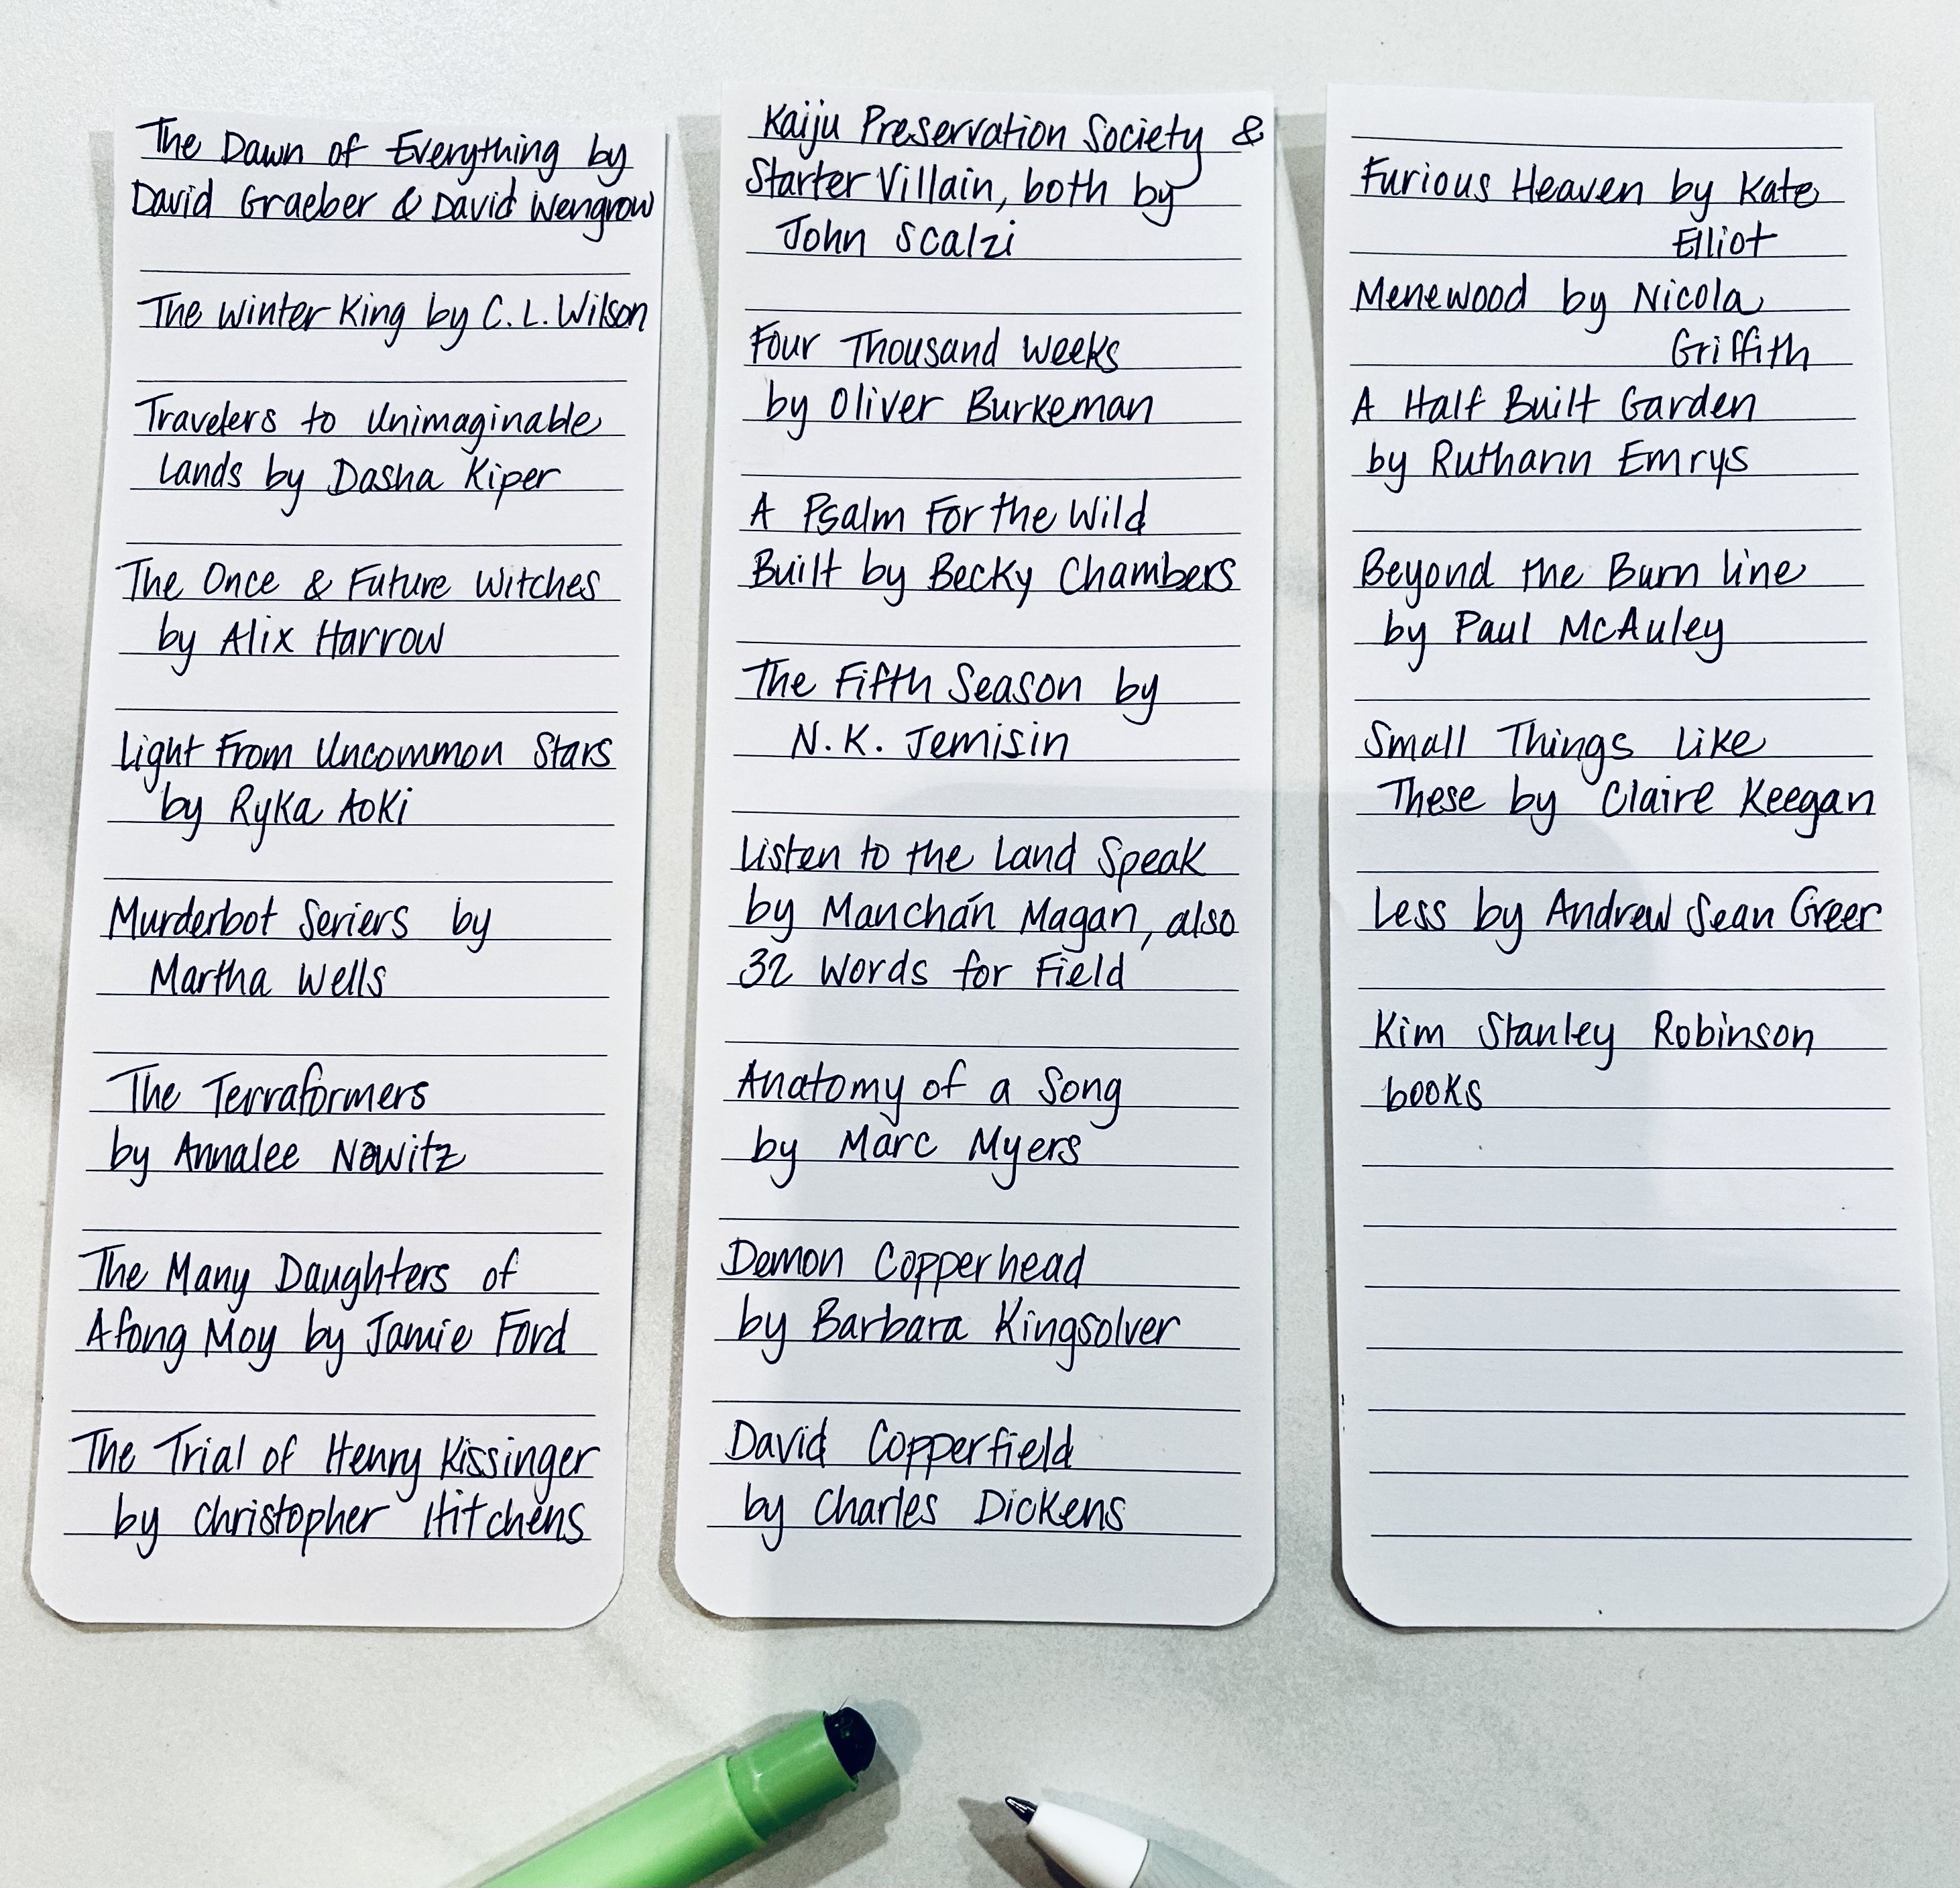 The Dawn of Everything by
David Graeber & David Wengrow
The Winter King by C.L. Wilson
Travelers to Unimaginable
Lands by Dasha Kiper
The Once & Future Witches
by Alix Harrow
Light From Uncommon Stars
by Ryka Aoki
Murderbot Seriers by
Martha Wells
The Terraformers
by Annalee Newitz
The Many Daughters of
Afong Moy by Jamie Ford
The Trial of Henry Kissinger
by Christopher Hitchens
Kaiju Preservation Society &
Starter Villain, both by
John Scalzi
Four Thousand Weeks
by Oliver Burkeman
A Psalm For the Wild
Built by Becky Chambers
The Fifth Season by
N.K. Jemisin
Listen to the Land Speak
by Manchán Magan, also
32 Words for Field
Anatomy of a Song
by Marc Myers
Demon Copperhead
by Barbara Kingsolver
David Copperfield
by Charles Dickens
Furious Heaven by Kate
Elliot
Menewood by Nicola
Griffith
A Half Built Garden
by Ruthann Emrys
Beyond the Burn line
by Paul McAuley
Small Things Like
These by Claire Keegan
Less by Andrew Sean Greer
Kim Stanley Robinson
books